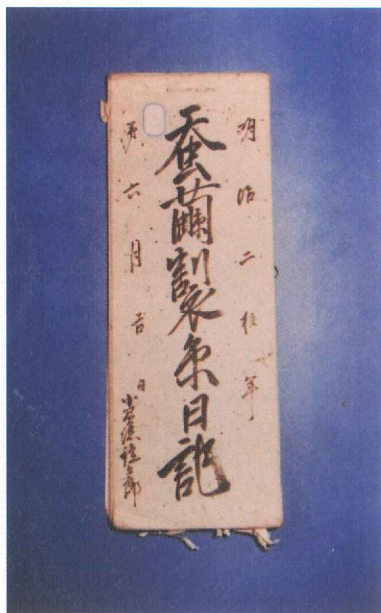 明治二拾年
蚕繭製糸日記
六月吉日